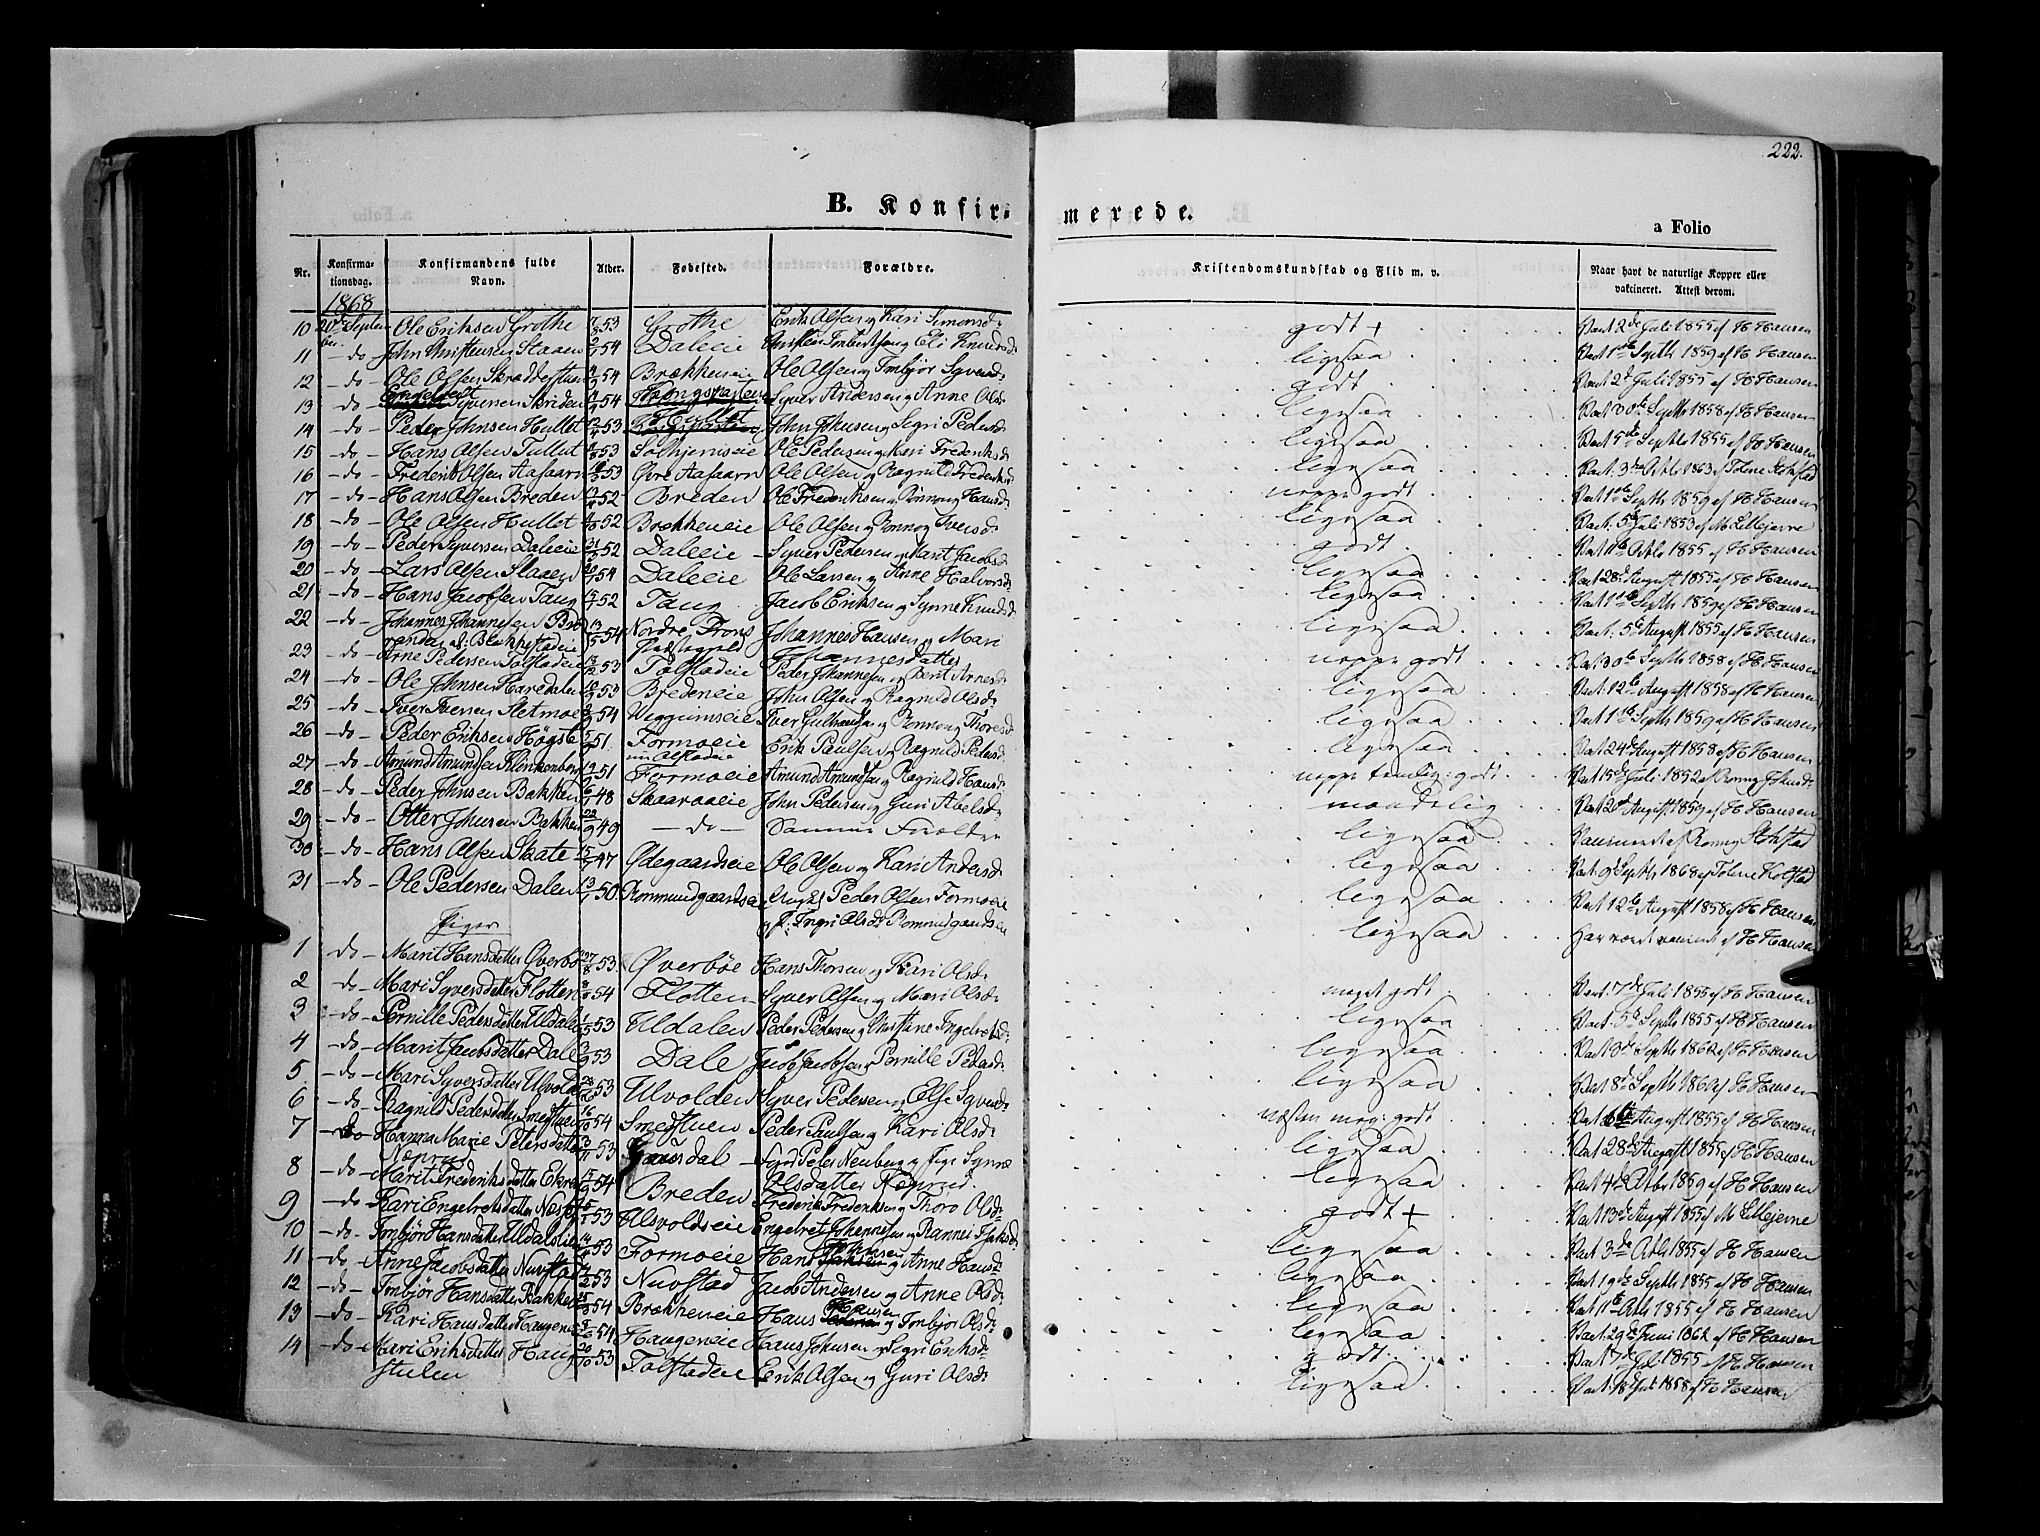 222.
B. Konfirmerede.
a Folio
Nr. Konfirmationsdag. Konfirmandens fulde Navn. Alder. Fødested. Forældre. Kristendomskundskab og Flid m. v. Naar havt de naturlige Kopper eller vakcineret. Attest derom.
1868
10 20de September Ole Eriksen Grothe 53 Grothe Erik Olsen og Kari Simensd: godt + Vact 2de Juli 1855 af H Hansen
11 -do- John Christensen Slaaen 54 Daleeie ligesaa Vact 1ste Septb 1859 af H Hansen
12 -do- Ole Olsen Skrædderstuen 54 Brækkeneie Ole Olsen og Torbjør Syversd: godt Vact 2de Juli 1855 af H Hansen
13 -do- Syversen Skriden 54 Syver Andersen og Anne Olsd: ligesaa Vact 30te Septb 1858 af H Hansen
14 -do- Peder Johnsen Hullet 53 Hullet John Johnsen og Segri Pedersd: ligesaa Vact 5te Septb 1855 af H Hansen
15 -do- Hans Olsen Tullut 53 Solhjemseie Ole Pedersen og Kari Frederiksd: ligesaa Vact 3die Octb 1863 af Tolene Kolstad
16 -do- Frederik Olsen Aasaaren 53 Øvre Aasaaren Ole Olsen og Ragnild Frederiksd noppe godt Vact 1ste Septb 1859 af H Hansen
17 -do- Hans Olsen Breden 52 Breden Ole Frederiksen og Ronnong Hansd: ligesaa Vact. 5te Juli 1853 af M Lillejerne
18 -do- Ole Olsen Hullet 52 Brækkeneie Ole Olsen og Ronnog Iversd: godt Vact 11te Octb 1855 af H Hansen
19 -do- Peder Syversen Daleeie 52 Daleeie Syver Pedersen og Marit Jacobsd: ligesaa Vact 28de August 1855 af H Hansen
20 -do- Lars Olsen Slaaen 54 Daleeie Ole Larsen og Anne Halvorsd: ligesaa Vact 1ste Septb 1859 af H Hansen
21 -do- Hans Jacobsen Taug 52 Taug Jacob Eriksen og Synne Knudsd: ligesaa Vact. 5te August 1855 af H Hansen
22 -do- Johannes Johannesen 54 Nordre Frons Præstegjeld Johannes Hansen og Mari Johannesdatter noppe godt Vact 30te Septb 1858 af H Hansen
23 -do- Arne Pedersen Tofstadeie 53 Tofstadeie Peder Johannesen og Berit Arnesd: ligesaa Vact. 12te August 1858 af H Hansen
24 -do- Ole Johnsen Haredalen 53 Bredeneie John Olsen og Ragnild Olsd: ligesaa Vact 1ste Septb 1859 af H Hansen
25 -do- Iver Iversen Sletmoe 54 Veggumseie Iver Gulbrandsen og Ronnog Thoresd: ligesaa Vact 24de August 1858 af H Hansen
26 -do- Peder Eriksen Høgsle 51 Formoeie Erik Paulsen og Ragnild Pedersd:
27 -do- Amund Amundsen Klinkenberg 51 Formoeie Amund Amundsen og Ragnild Hansd: noppe temlig: godt Vact 15de Juli 1852 af Ronnog
28 -do- Peder Johnsen Bakken 48 Skaaraaeie John Pedersen og Guri Abelsd: maadelig Vact 20de August 1859 af H Hansen
29 -do- Otter Johnsen Bakken 22/9 49 -do- Samme Forældre ligesaa
30 -do- Hans Olsen Skate 47 Ødegaardseie Ole Olsen og Kari Andersd: ligesaa Vact. 9de Septb 1868 af Tolene Kolstad
31 -do- Ole Pedersen Dalen 50 Rommundgaardseie Ungk: Peder Olsen Formoeie og P: Ingri Olsd: Rommundgaardseie ligesaa Vact 12te August 1858 af H Hansen
ligesaa Har været vaccinert af H Hansen
Piger
1 -do- Marit Hansdatter Øverbø 53 Øverbøe Hans Thorsen og Kari Olsd: meget godt Vact. 7de Juli 1855 af H Hansen
2 -do- Mari Syversdatter Flotten 54 Flotten Syver Olsen og Mari Olsd: ligesaa Vact. 5te Septb 1855 af H Hansen
3 -do- Pernille Pedersdatter Uldalen 53 Uldalen Peder Pedersen og Christine Ingebretsd: ligesaa Vact 3de Septb 1862 af H Hansen
4 -do- Marit Jacobsdatter Dale 53 Dale Jacob Jacobsen og Pernille Pedersd: ligesaa Vact 8de Septb 1860 af H Hansen
5 -do- Mari Syversdatter Ulvolden 53 Ulvolden Syver Pedersen og Else Syversd: næsten meg: godt Vact 6te August 1855 af H Hansen
6 -do- Ragnild Pedersdatter Smedstuen 54 Smedstuen Peder Paulsen og Kari Olsd: ligesaa Vact 28de August 1855 af H Hansen
7 -do- Hanna Marie Petersdatter Næprud 53 Gausdal Peter Neuberg og Pige Synnø Olsdatter Næprud ligesaa Vact 4de Octbr 1859 af H Hansen
8 -do- Marit Frederiksdatter Ekre 54 Breden Frederik Frederiksen og Thoro Olsd: godt + Vact 13de August 1855 af M Lillejerne
9 -do- Kari Engebretsdatter 53 Ulsvoldseie Engebret Johannesen og Rannei ligesaa Vact 3die Octb 1855 af H Hansen
10 -do- Torbjør Hansdatter Uldalslien 53 Formoeie Hans og Anne Hansd: ligesaa Vact 19de Septb 1855 af H Hansen
11 -do- Anne Jacobsdatter Nustad 53 Nustad Jacob Andersen og Anne Olsd: ligesaa Vact 11te Octb 1855 af H Hansen
12 -do- Torbjør Hansdatter Bakken 54 Brækkeneie Hans Hansen og Torbjør Olsd: ligesaa Vact. 29de Juni 1862 af H Hansen
13 -do- Kari Hansdatter Haugeneie 54 Haugeneie Hans Johnsen og Segri Eriksd: godt Vact 7de Juli 1855 af H Hansen
14 -do- Mari Eriksdatter Haugstulen 20/10 53 Tofstadeie Erik Olsen og Guri Olsd: ligesaa Vact. 18de Juli 1858 af H Hansen